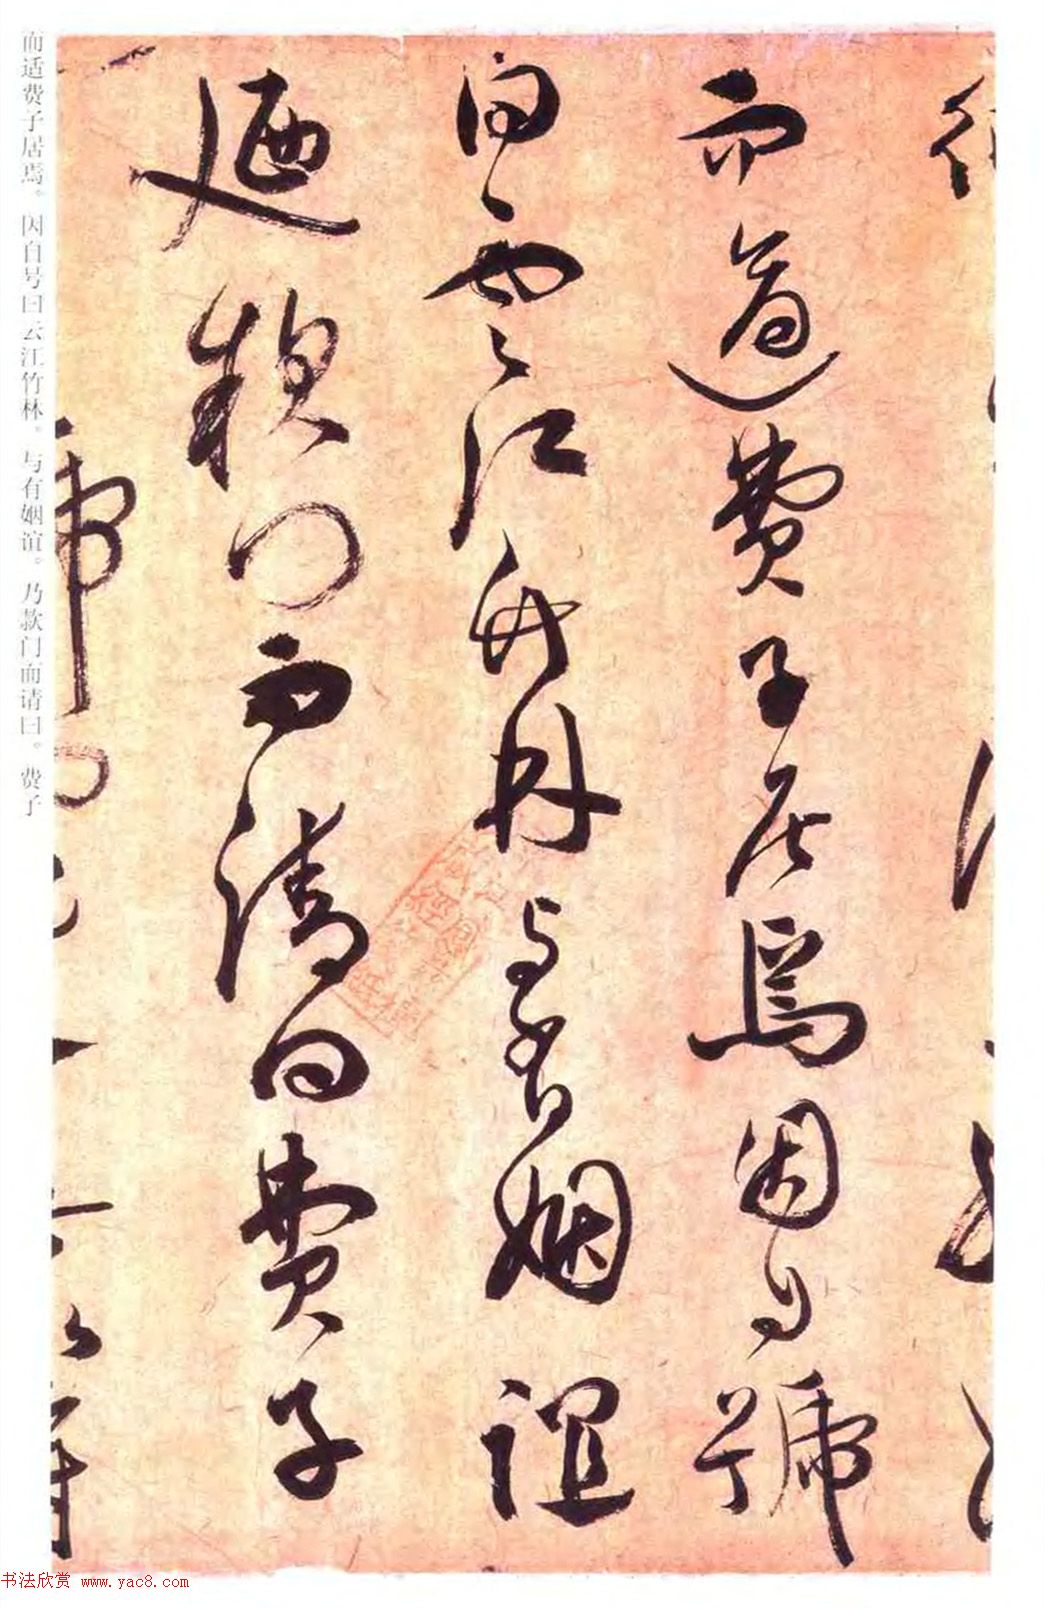 而適費子居焉因自號
曰雲江竹林与有姻誼
廼款門而請曰費子
而适费子居焉。因自号曰云江竹林。与有姻谊。乃款门而请曰。费子
书法欣赏 www.yac8.com